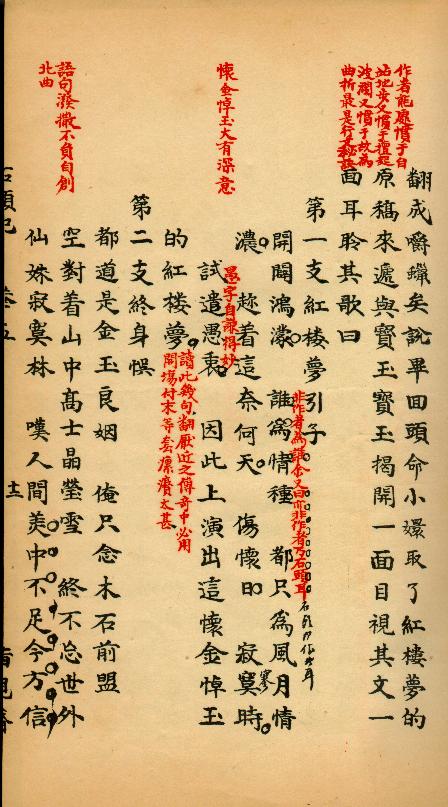 作者能處慣于自
站地步又慣于擅起
波瀾又慣于故為
曲折最是行文秘訣
懷金悼玉大有深意
語句潑撒不負自創
北曲
翻成嚼蠟矣說畢回頭命小嬛取了紅樓夢的
原稿來遞與寶玉寶玉揭開一面目視其文一
面耳聆其歌曰
第一支紅樓夢引子
非作者為誰余又曰亦非作者乃石頭耳
開闢鴻濛 誰為情種 都只為風月情
濃 趂着這奈何天 傷懷日 寂寞時
寥
試遣愚衷 因此上演出這懷金悼玉
愚字自謙得妙
的紅樓夢
讀此幾句翻厭近之傳奇中必用
開場付末等套累贅太甚
第二支終身悞
都道是金玉良姻 俺只念木石前盟
空對着山中高士晶瑩雪 終不忘世外
仙姝寂寞林 嘆人間美中不足今方信
石頭記 卷五
十二